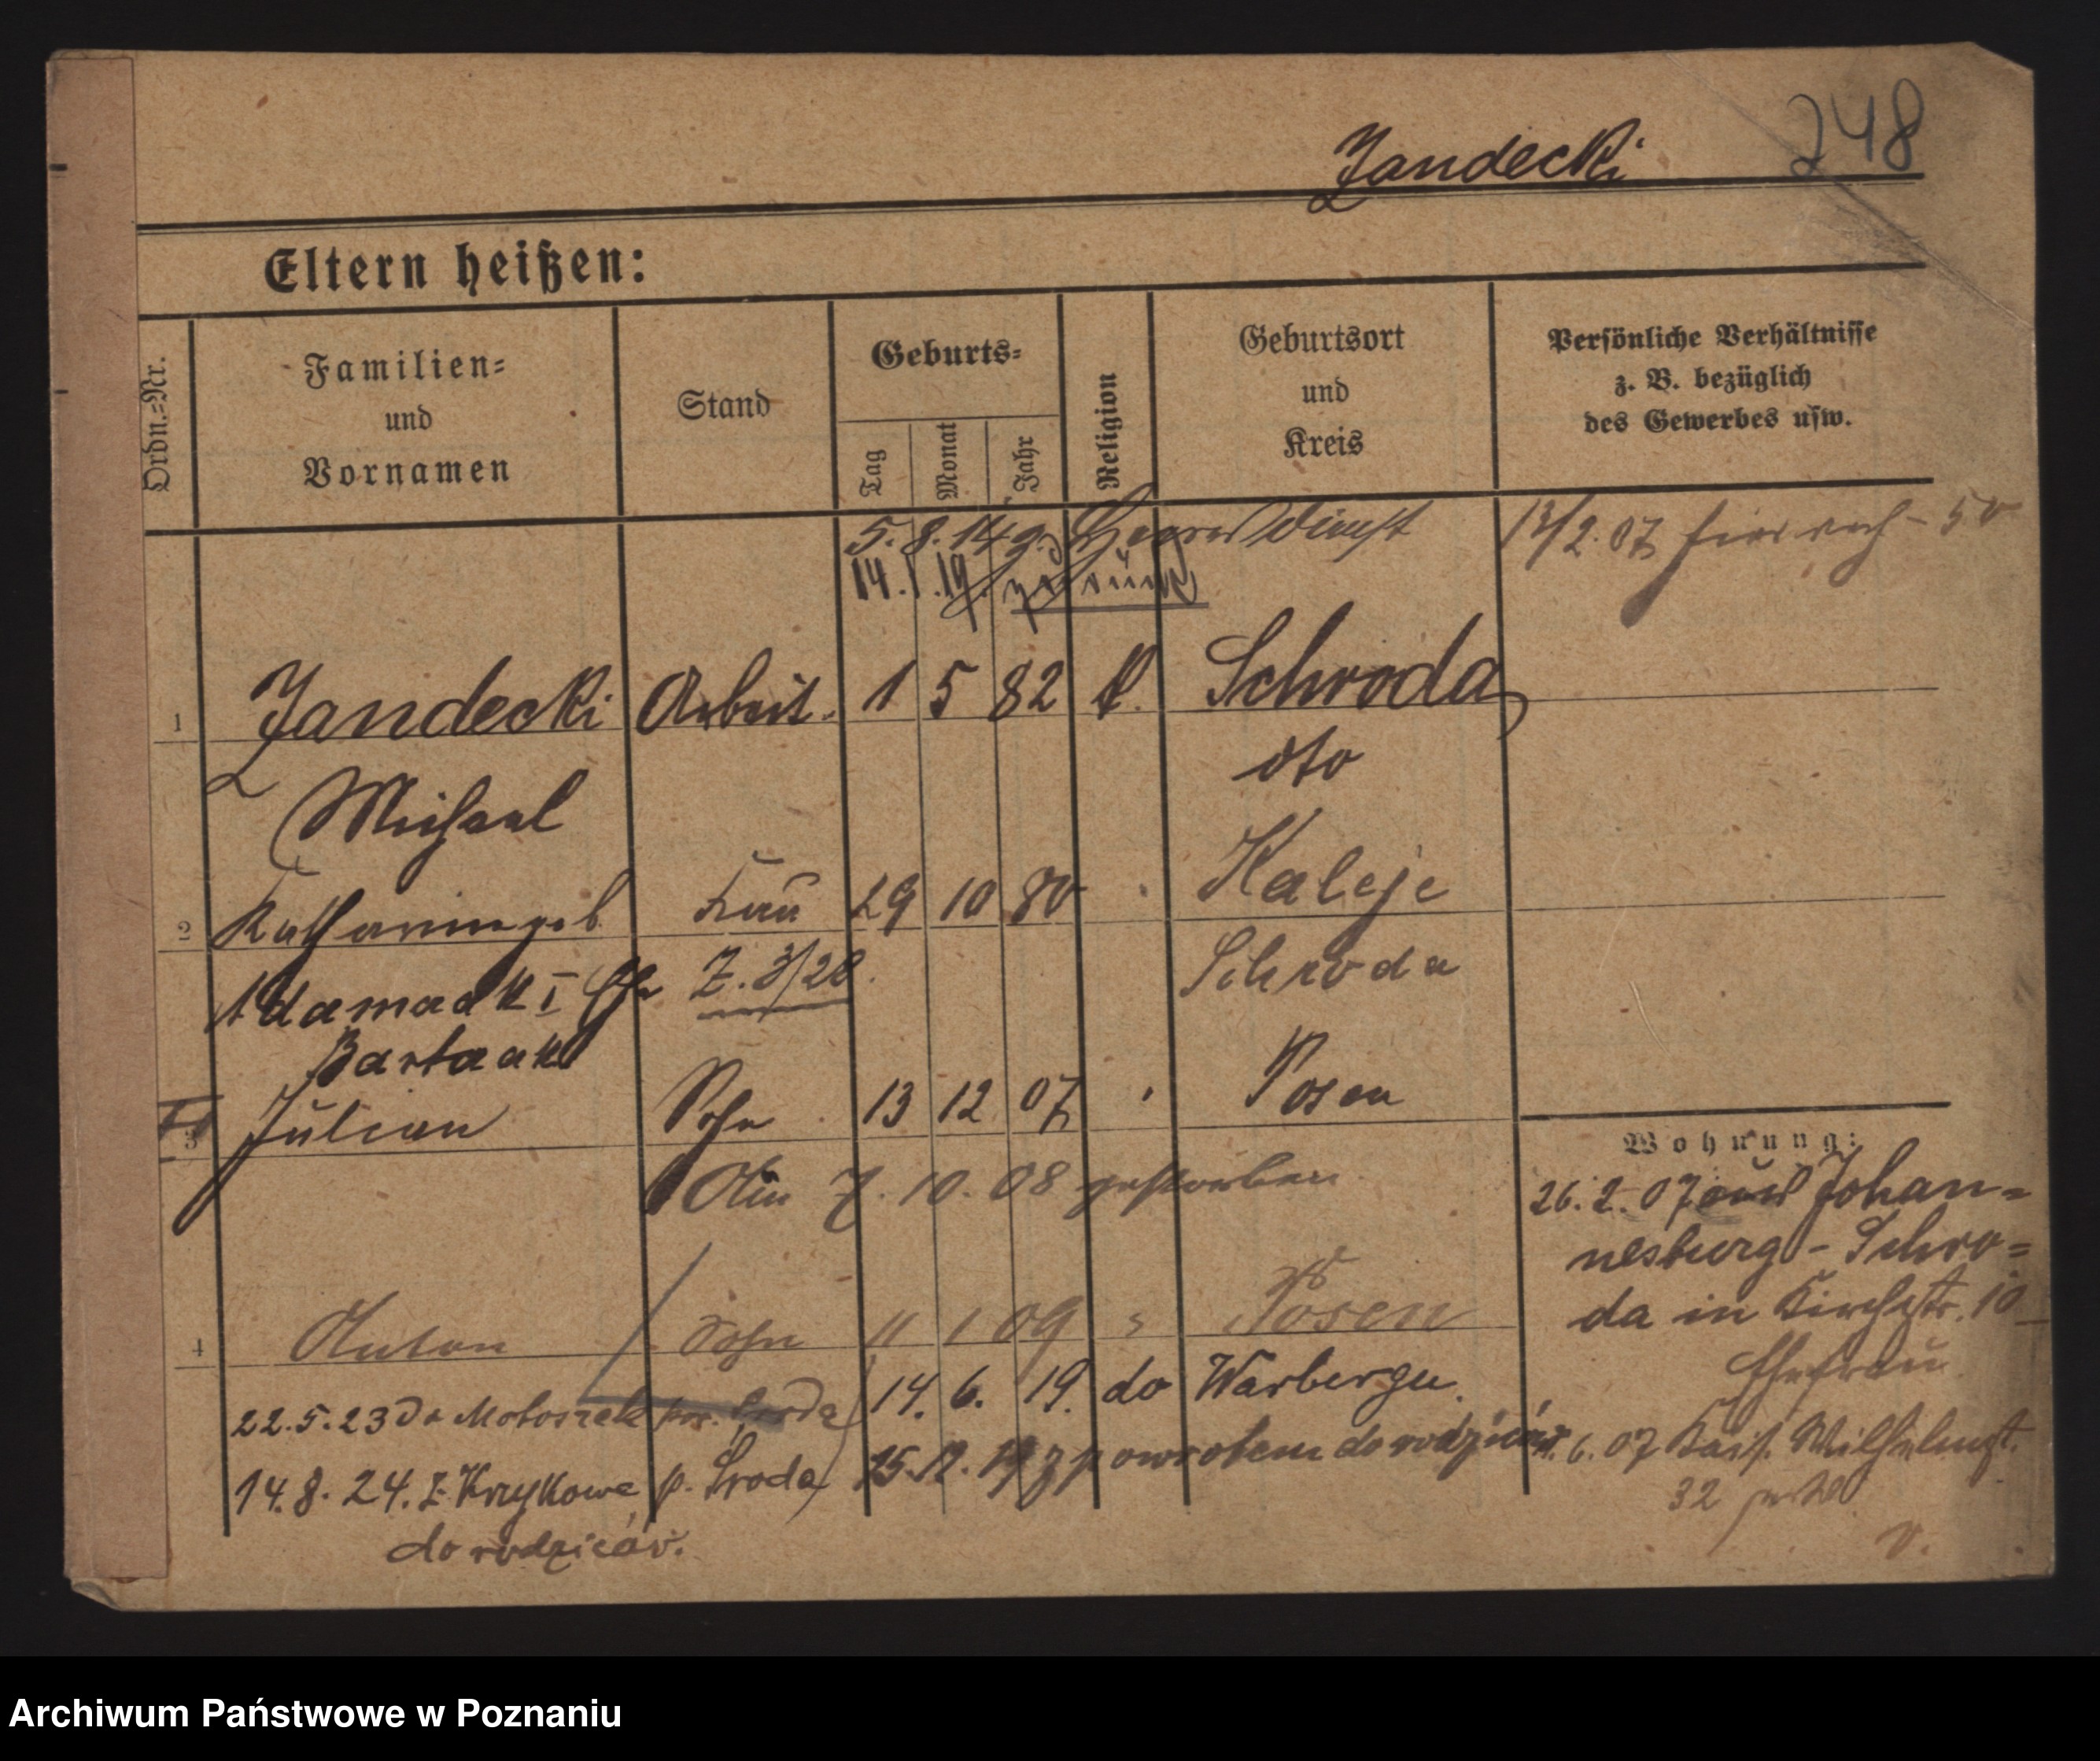 248
Jandecki
Eltern heißen:
Ordn.-Nr.
Familien-
und
Vornamen
Stand
Geburts-
Tag
Monat
Jahr
Religion
Geburtsort
und
Kreis
Persönliche Verhältnisse
z. B. bezüglich
des Gewerbes usw.
5. 8. 14 z. Heeresdienst
14. 1. 19. zurück
13/2. 07
1 Jandecki Arbeit. 1 5 82 k. Schroda
dto
Michael
2 Katharina geb. Frau 29 10 80 Kaleje
Adamack I Ehe Z. 3/28. Schroda
Bartaak
3 Julian Sohn 13 12 07 Posen
Am 7. 10. 08 gestorben
4 Anton Sohn 11 1 09 " Posen
14. 6. 19. do Warbergu.
22. 5. 23 do
14. 8. 24. z Krzykowa p. Środa
do rodziców.
25. 12. 19 z powrotem do rodziców
Wohnung:
26. 2. 07 aus Johan-
nesburg - Schro-
da in Kirchstr. 10
Ehefrau
6. 07 Kais. Wilhelmst.
32
v.